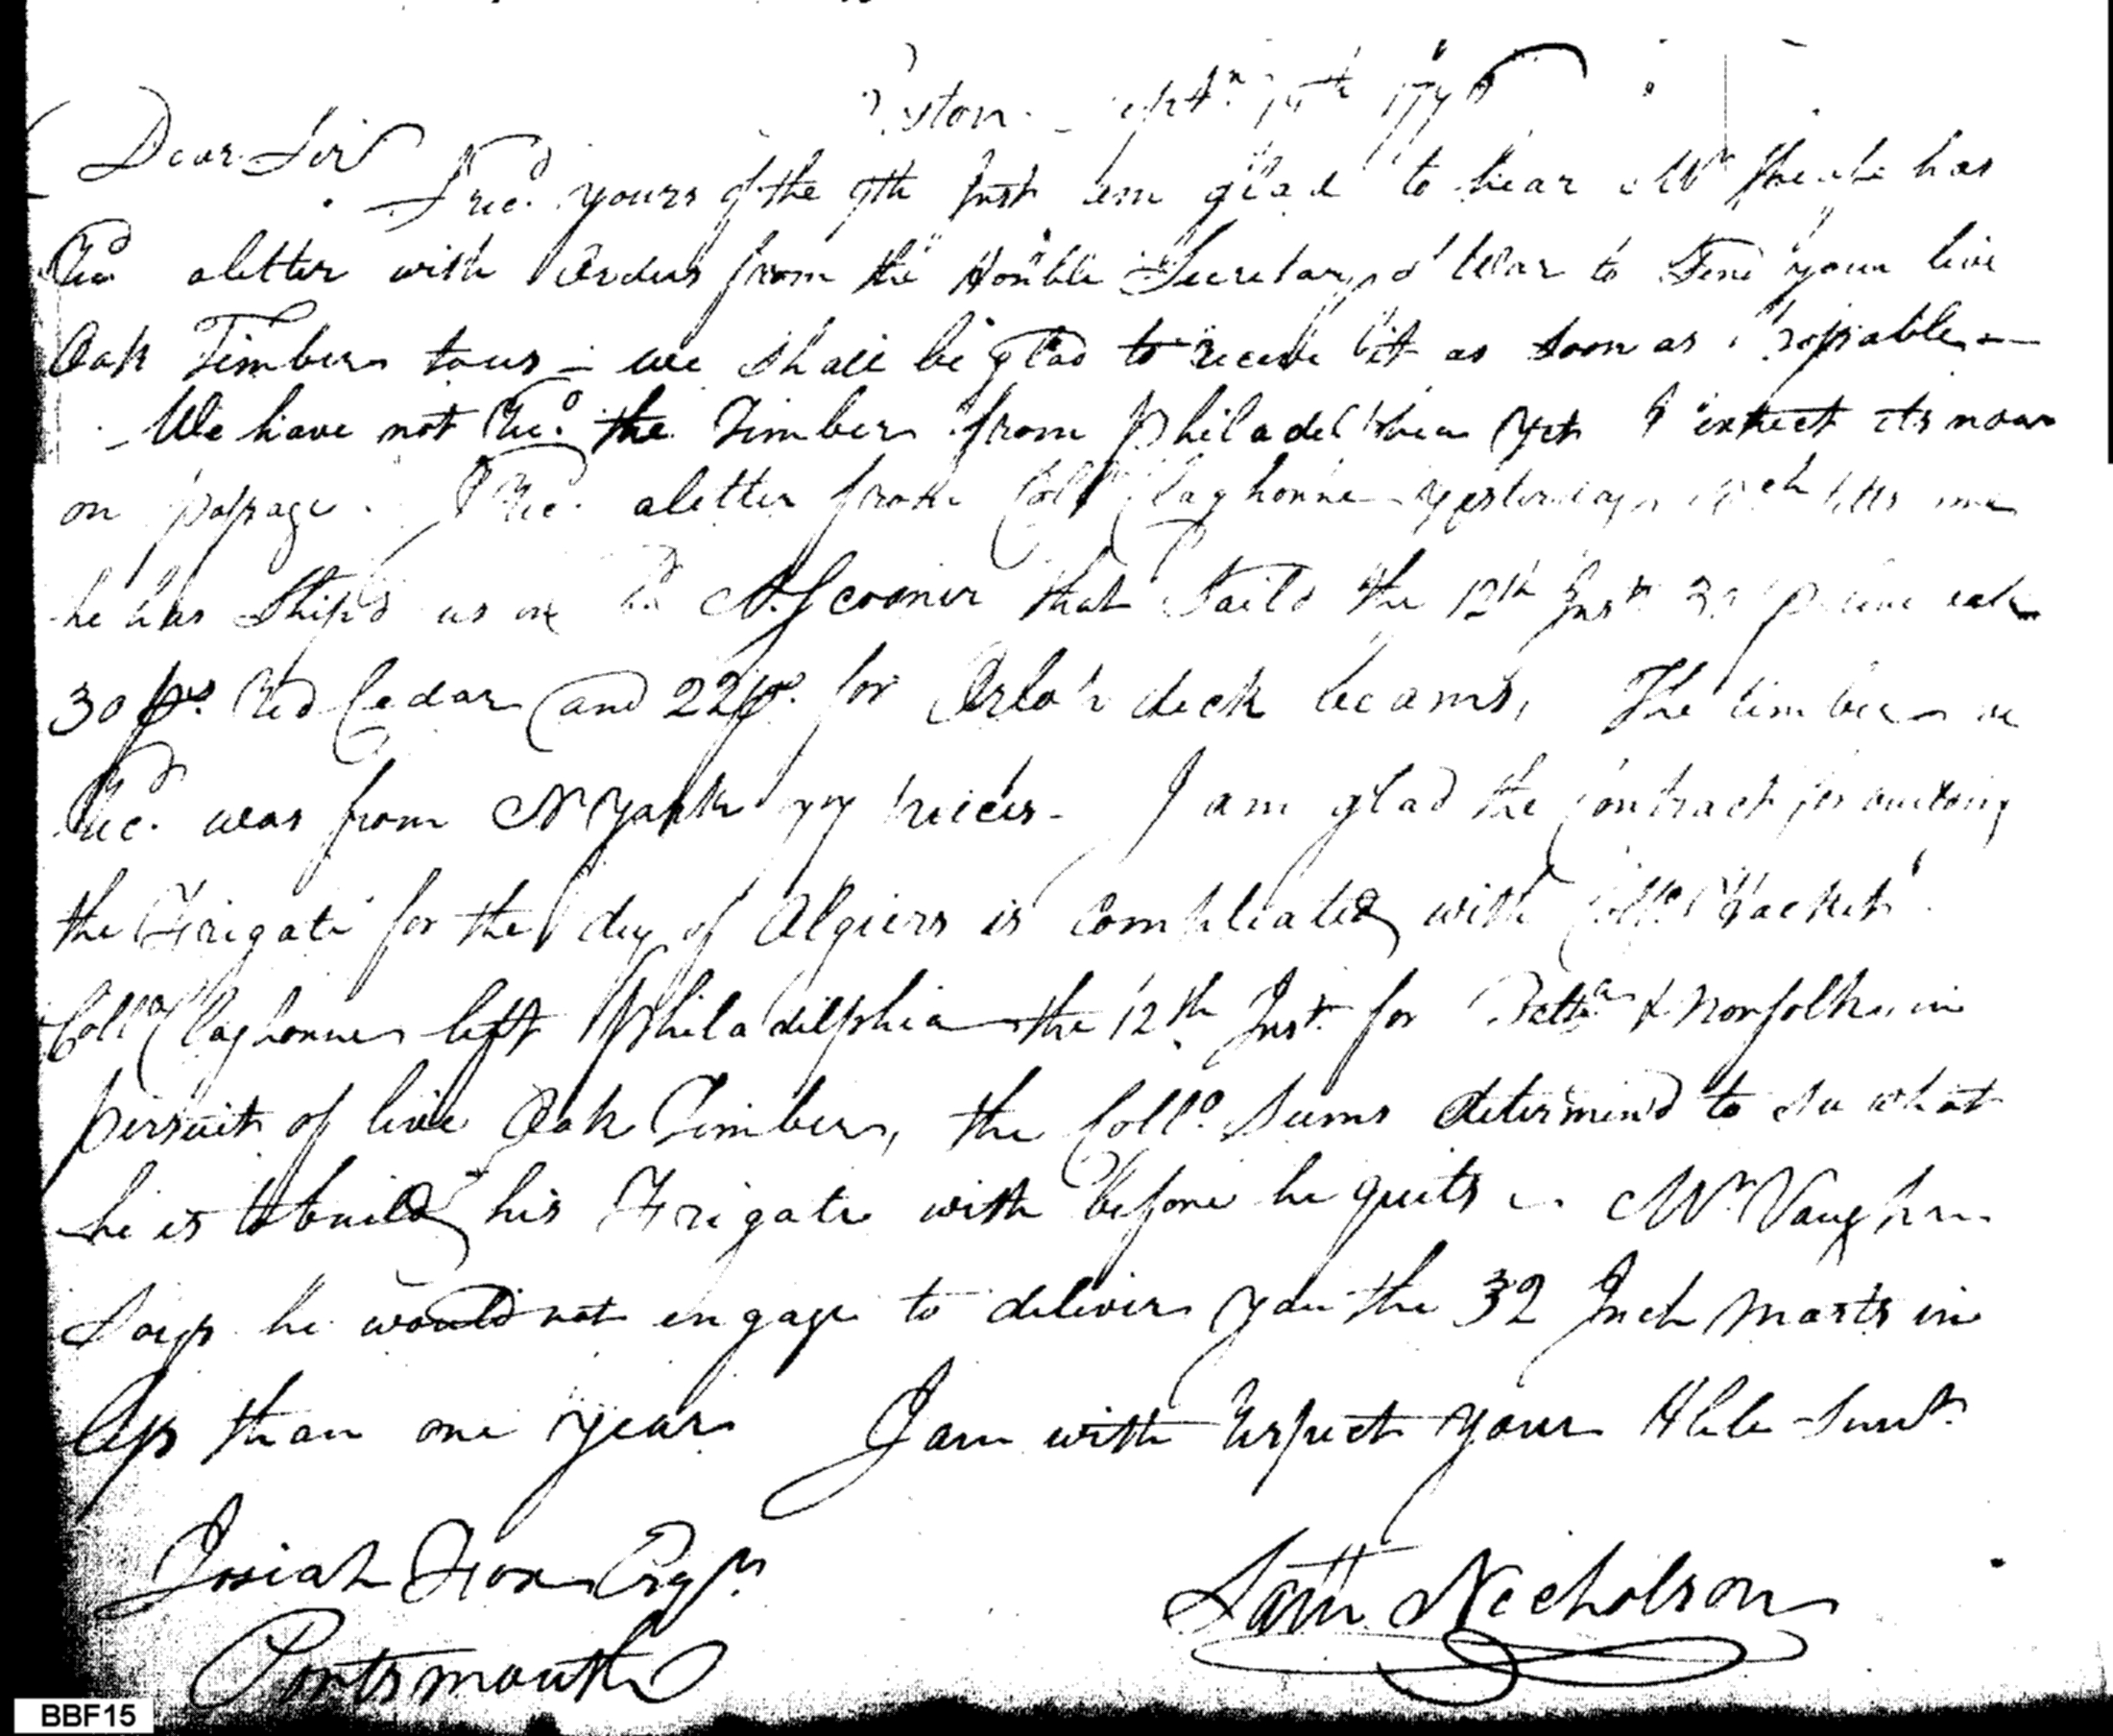 Boston Septr. 14th 1796
Dear Sir
I recd. yours of the 9th Inst am glad to hear Mr has
Recd aletter with Orders from the Honble Secretary of War to Send your live
Oak Timber to us - we shall be glad to receive it as soon as possable -
- We have not Recd. the Timber from Philadelphia Yet I expect its now
on passage. I Recd. aletter from Collo Claghorne yesterday wch tells me
he has Ship'd us on A Scooner that Saild the 12th Inst. live oak
30 ps. Red Cedar and 22 ps. for Orlop deck beams, The timber we
Recd. was from N York 99 peices - I am glad the Contract for building
the Frigate for the dey of Algiers is compleated with Collo. Hacket
Collo Claghorne left Philadelphia the 12th. Inst. for & Norfolk in
persuit of live Oak Timber, the Collo. Seems determin'd to see what
he is to build his Frigate with before he quits - Mr Vaughn
Says he would not engage to deliver you the 32 Inch Masts in
less than one year I am with respect your Hble Servt.
Josiah Fox Esqr.
Saml. Nicholson
Portsmouth
BBF15